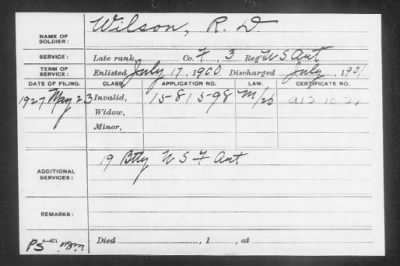 NAME OF SOLDIER: Wilson, R. D.
SERVICE: Late rank, Co. F, 3 Reg't U S Art
TERM OF SERVICE: Enlisted July 17, 1900 Discharged July, 1901
DATE OF FILING. CLASS. APPLICATION NO. LAW. CERTIFICATE NO.
1927 May 23 Invalid, 1581598
Widow,
Minor,
ADDITIONAL SERVICES: 19 Btty U S F Art
REMARKS:
Died , 1 , at